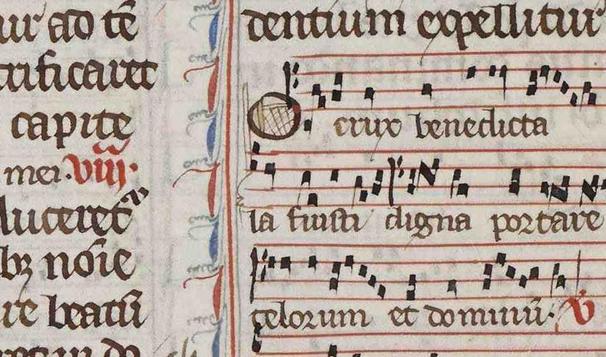 ur ad tē
crificaret
capite
mei· viij·
luceret
bꝫ noīe
re beatū
dentium expellitur
O crux benedicta
la fuisti digna portare
celorum et dominū· V̄